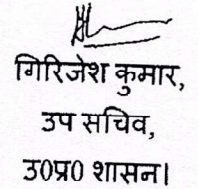 गिरिजेश कुमार,
उप सचिव,
उ0प्र0 शासन।